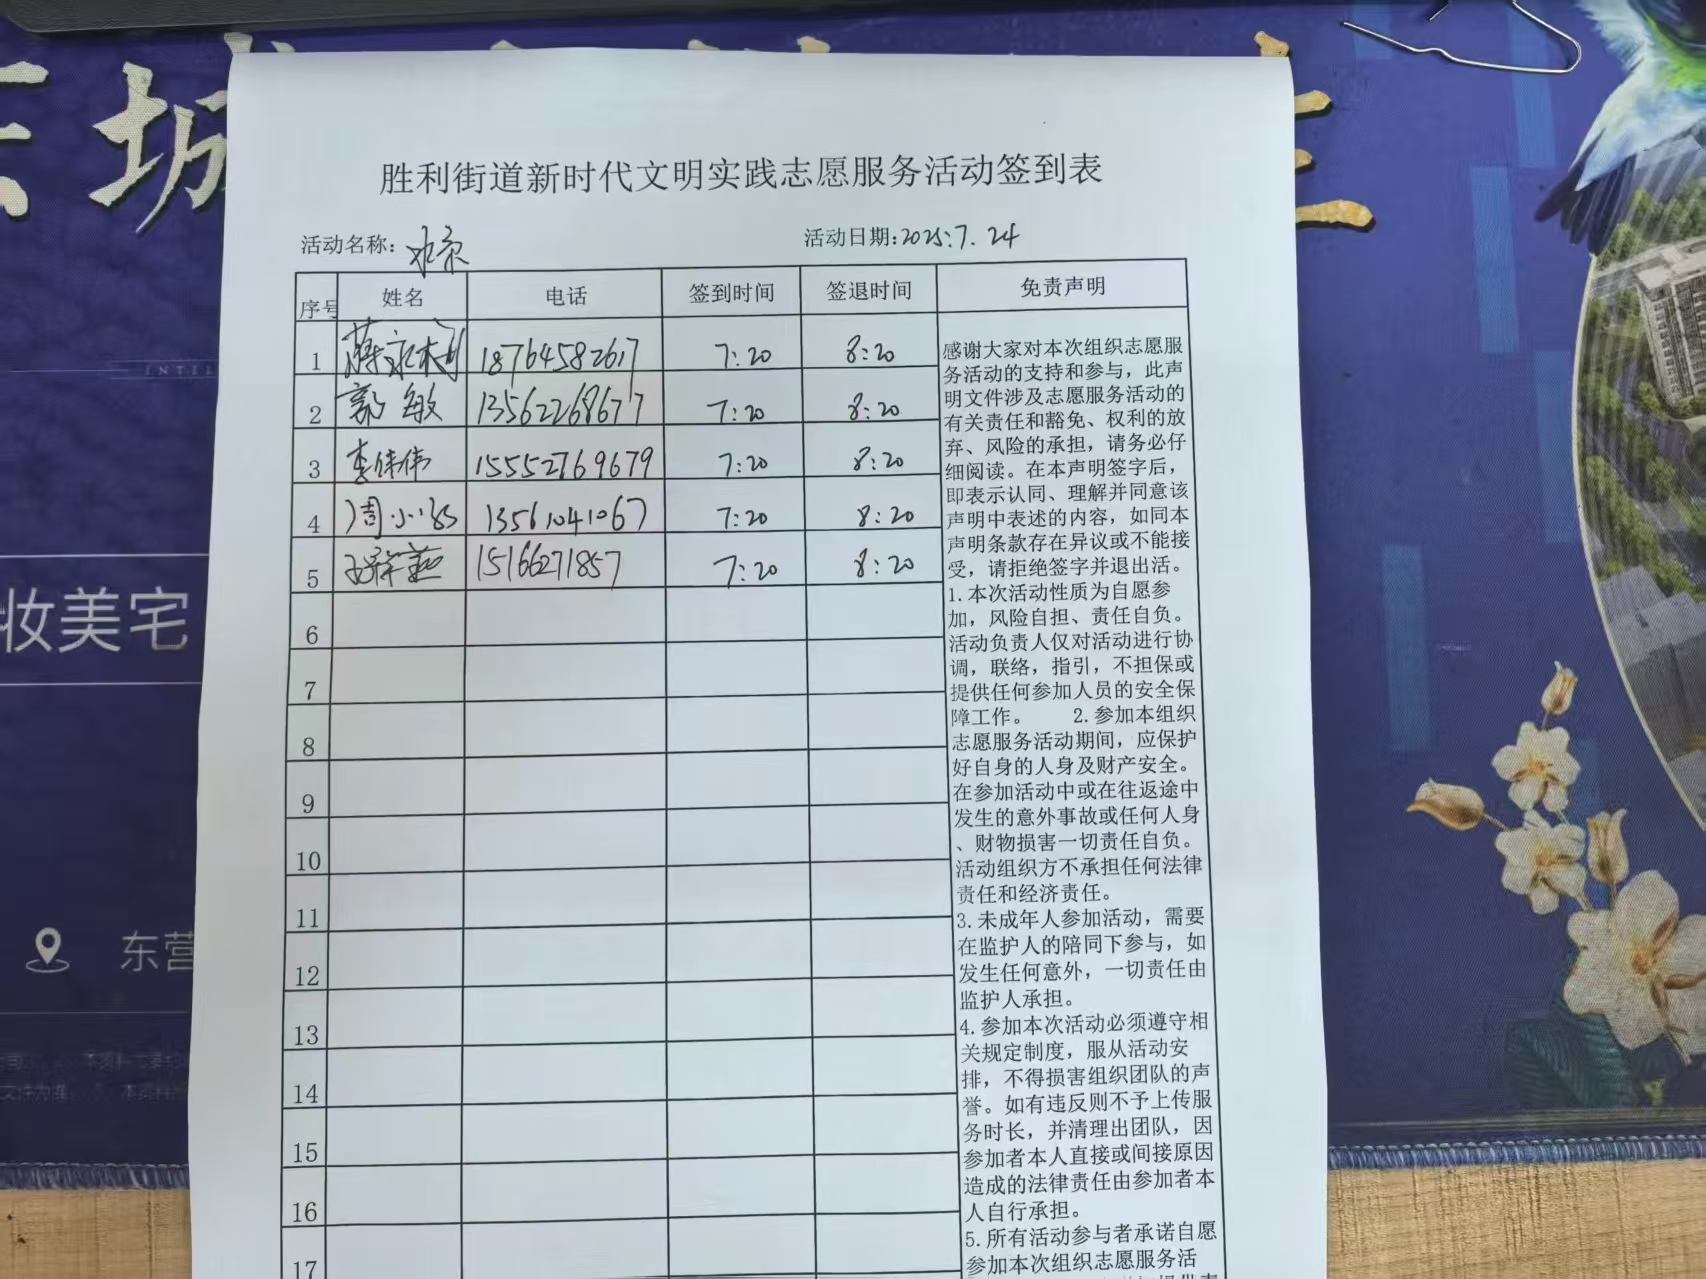 东城
妆美宅
东营
INTEL
胜利街道新时代文明实践志愿服务活动签到表
活动名称：
活动日期：2025.7.24
序号 姓名 电话 签到时间 签退时间 免责声明
1 蒋永利 18764582617 7:20 8:20
2 郭敏 13562268677 7:20 8:20
3 李伟 15552769679 7:20 8:20
4 周小 13561041067 7:20 8:20
5 15166271857 7:20 8:20
6
7
8
9
10
11
12
13
14
15
16
17
感谢大家对本次组织志愿服
务活动的支持和参与，此声
明文件涉及志愿服务活动的
有关责任和豁免、权利的放
弃、风险的承担，请务必仔
细阅读。在本声明签字后，
即表示认同、理解并同意该
声明中表述的内容，如同本
声明条款存在异议或不能接
受，请拒绝签字并退出活。
1.本次活动性质为自愿参
加，风险自担、责任自负。
活动负责人仅对活动进行协
调，联络，指引，不担保或
提供任何参加人员的安全保
障工作。 2.参加本组织
志愿服务活动期间，应保护
好自身的人身及财产安全。
在参加活动中或在往返途中
发生的意外事故或任何人身
、财物损害一切责任自负。
活动组织方不承担任何法律
责任和经济责任。
3.未成年人参加活动，需要
在监护人的陪同下参与，如
发生任何意外，一切责任由
监护人承担。
4.参加本次活动必须遵守相
关规定制度，服从活动安
排，不得损害组织团队的声
誉。如有违反则不予上传服
务时长，并清理出团队，因
参加者本人直接或间接原因
造成的法律责任由参加者本
人自行承担。
5.所有活动参与者承诺自愿
参加本次组织志愿服务活